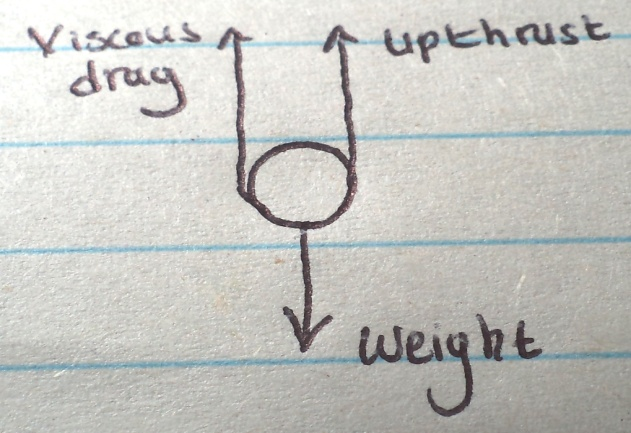 Viscous
drag
upthrust
weight